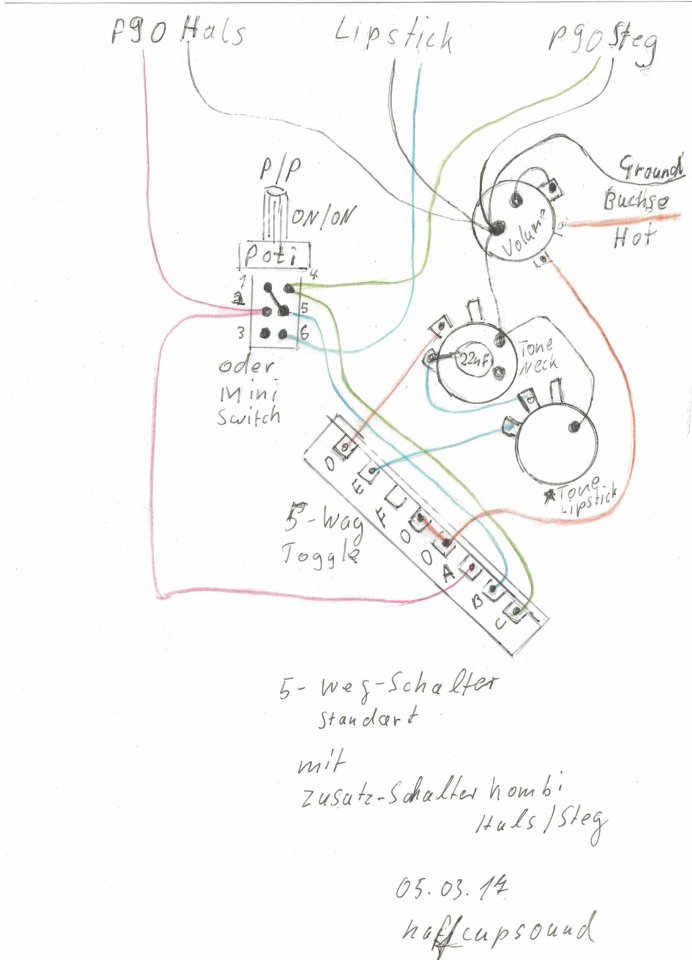 P90 Hals
Lipstick
P90 Steg
P/P
ON/ON
Poti
1
4
2
5
3
6
oder
Mini
Switch
Ground
Buchse
Hot
Volume
Tone
Neck
22nF
Tone
Lipstick
5-Wag
Toggle
D
E
F
O
O
A
B
C
5-Weg-Schalter
Standart
mit
Zusatz-Schalter Kombi
Hals/Steg
05.03.17
haffcupsound